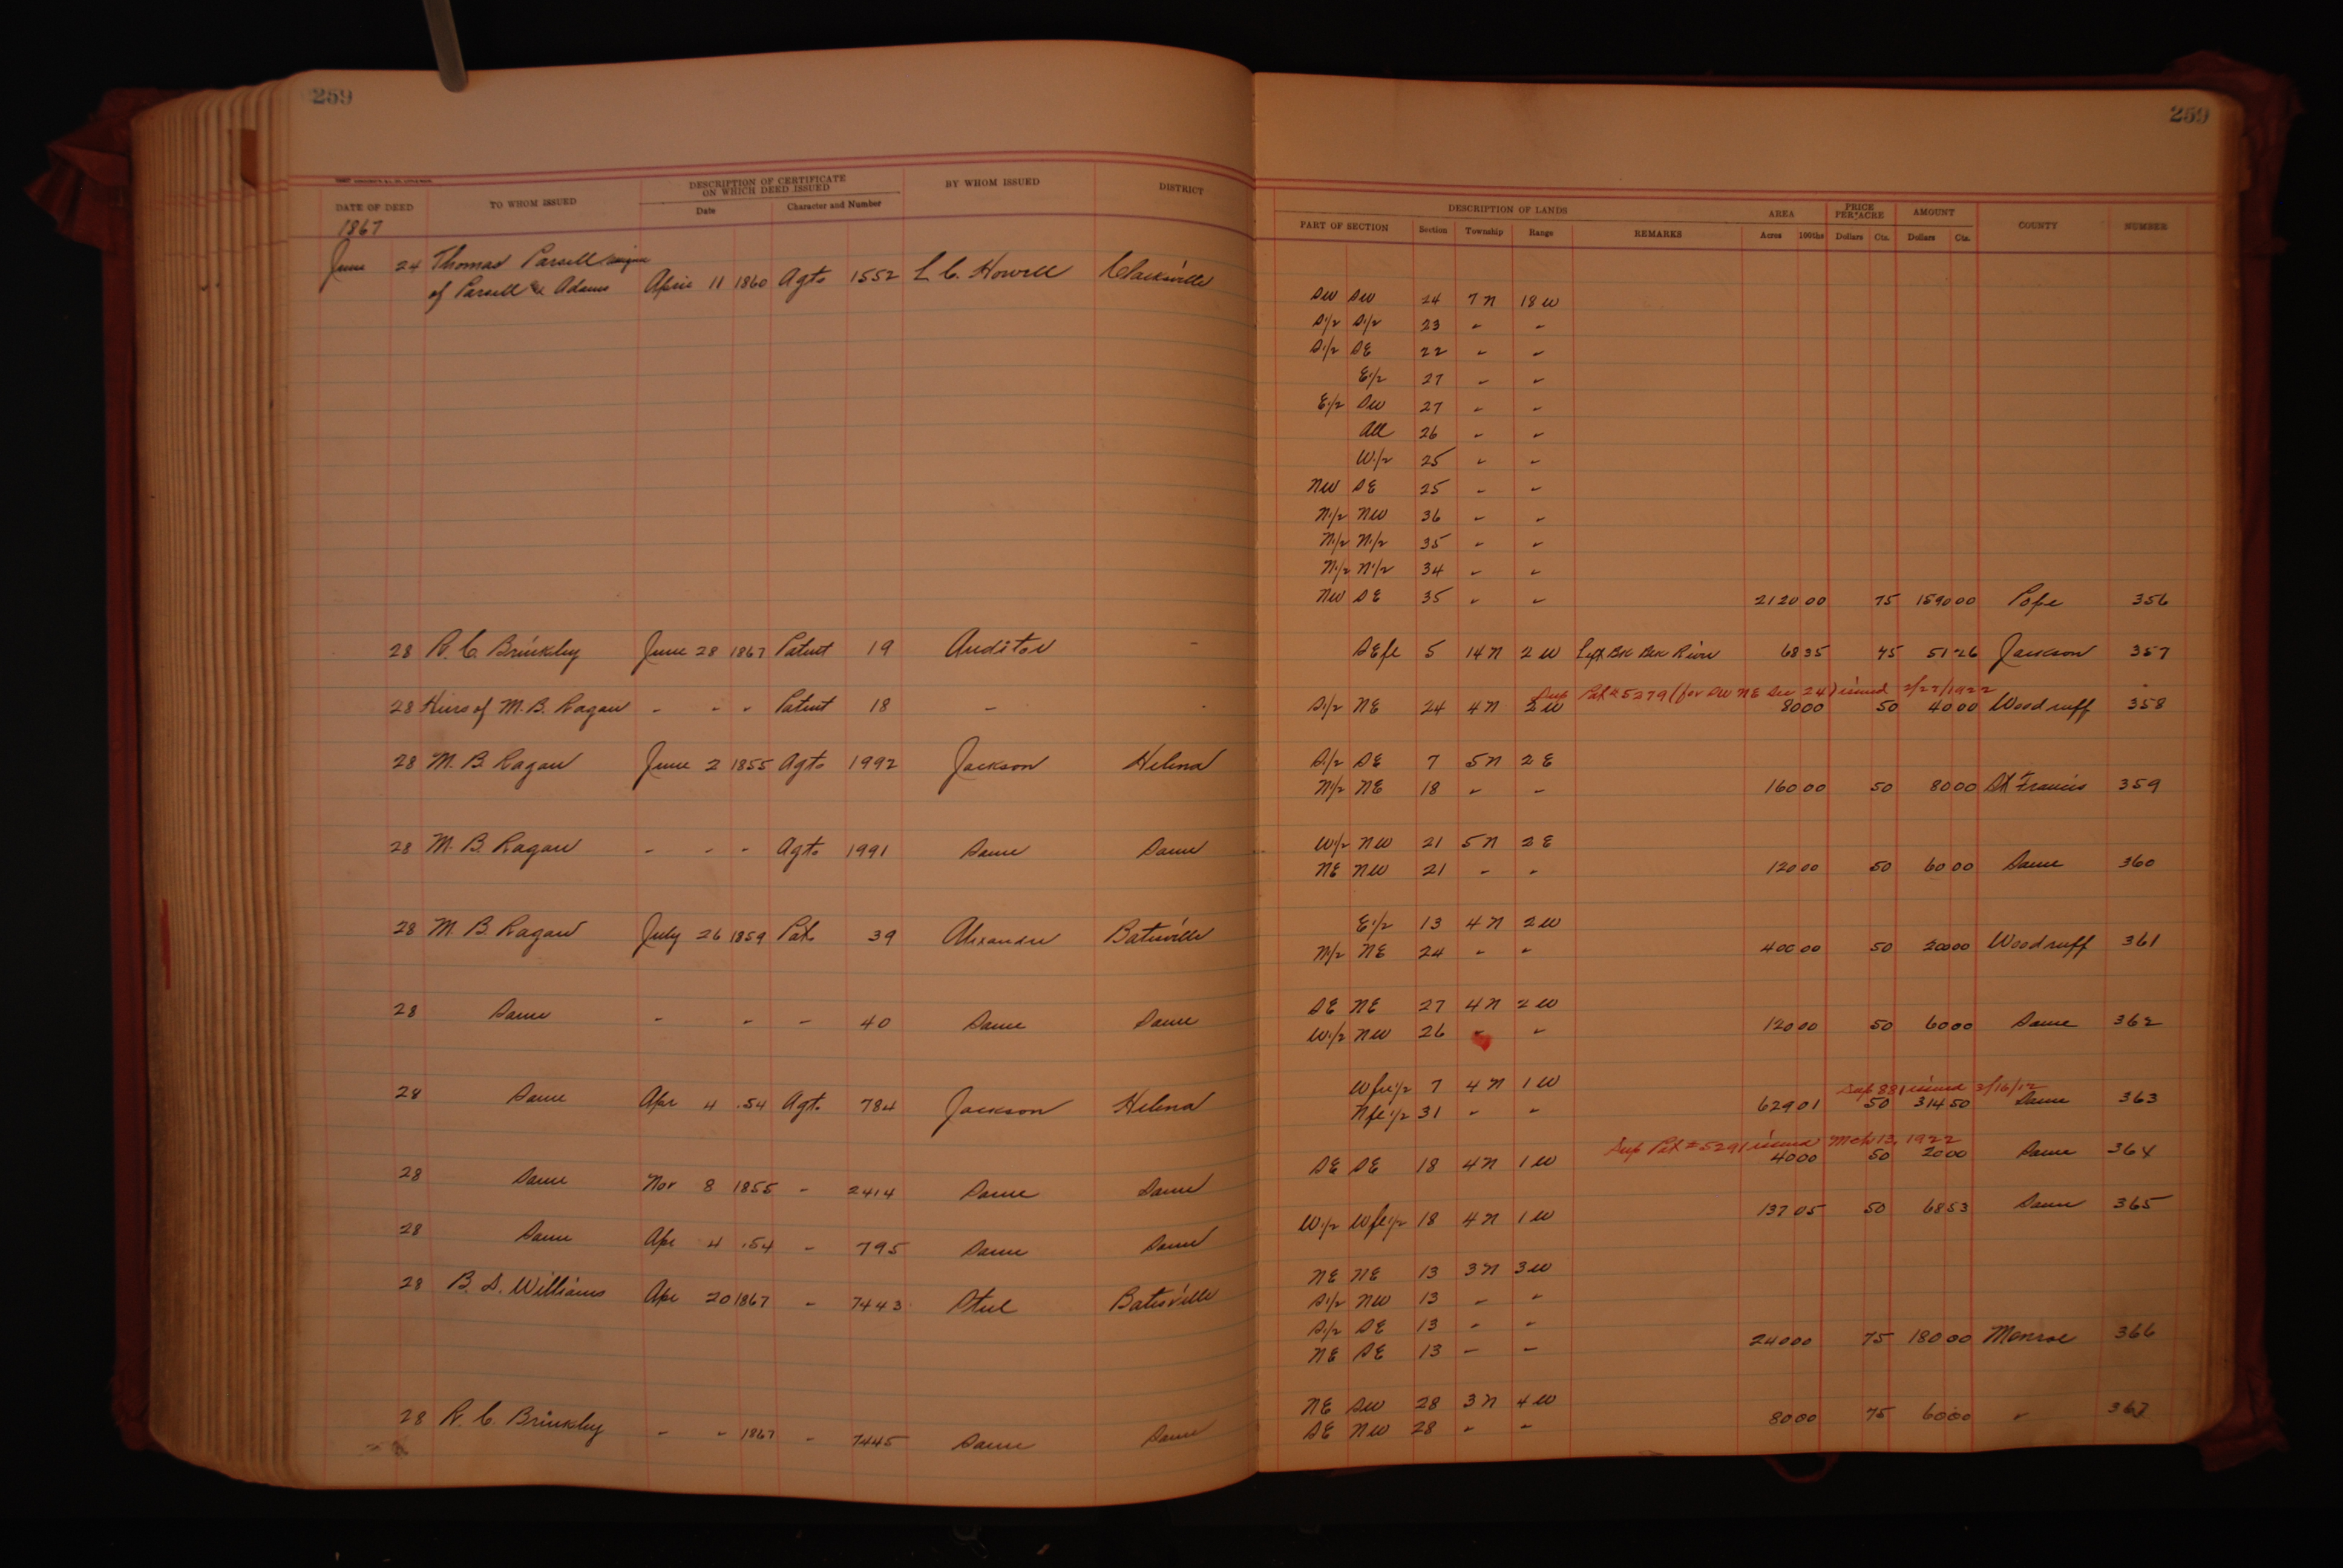 259
259
DESCRIPTION OF CERTIFICATE ON WHICH DEED ISSUED
DATE OF DEED TO WHOM ISSUED Date Character and Number BY WHOM ISSUED DISTRICT
DESCRIPTION OF LANDS AREA PRICE PER ACRE AMOUNT
PART OF SECTION Section Township Range REMARKS Acres 100ths Dollars Cts. Dollars Cts. COUNTY NUMBER
1867
June 24 Thomas Parsell assignee
of Parsell & Adams April 11 1860 Agts 1552 L C. Howell Clarksville
SW SW 24 7 N 18 W
S1/2 S1/2 23 " "
S1/2 SE 22 " "
E1/2 27 " "
E1/2 SW 27 " "
All 26 " "
W1/2 25 " "
NW SE 25 " "
N1/2 NW 36 " "
N1/2 N1/2 35 " "
N1/2 N1/2 34 " "
NW SE 35 " " 2120 00 75 1590 00 Pope 356
28 R. C. Brinkley June 28 1867 Patent 19 Auditor - SEfl 5 14 N 2 W Left Bk Blk River 68 35 75 51 26 Jackson 357
Sup Pat #5279 (for SW NE Sec 24) issued 2/27/1922
28 Heirs of M. B. Ragan - - - Patent 18 - - S1/2 NE 24 4 N 2 W 80 00 50 40 00 Woodruff 358
28 M. B. Ragan June 2 1855 Agts 1992 Jackson Helena S1/2 SE 7 5 N 2 E
N1/2 NE 18 " " 160 00 50 80 00 St Francis 359
28 M. B. Ragan - - - Agts 1991 Same Same W1/2 NW 21 5 N 2 E
NE NW 21 - " 120 00 50 60 00 Same 360
28 M. B. Ragan July 26 1859 Pat. 39 Alexander Batesville E1/2 13 4 N 2 W
N1/2 NE 24 - " 400 00 50 200 00 Woodruff 361
28 Same - - - 40 Same Same SE NE 27 4 N 2 W
W1/2 NW 26 " " 120 00 50 60 00 Same 362
28 Same Apr 4 .54 Agt. 784 Jackson Helena W fr1/2 7 4 N 1 W
Sup 881 issued 3/16/12
Nfl 1/2 31 " " 629 01 50 314 50 Same 363
Sup Pat #5291 issued Mch 13, 1922
28 Same Nov 8 1855 - 2414 Same Same SE SE 18 4 N 1 W 40 00 50 20 00 Same 364
28 Same Apr 4 .54 - 795 Same Same W1/2 Wfl1/2 18 4 N 1 W 137 05 50 68 53 Same 365
28 B. S. Williams Apr 20 1867 - 7443 Steel Batesville NE NE 13 3 N 3 W
S1/2 NW 13 - "
S1/2 SE 13 - "
NE SE 13 - - 240 00 75 180 00 Monroe 366
28 R. C. Brinkley - " 1867 - 7445 Same Same NE SW 28 3 N 4 W
SE NW 28 " - 80 00 75 60 00 " 367